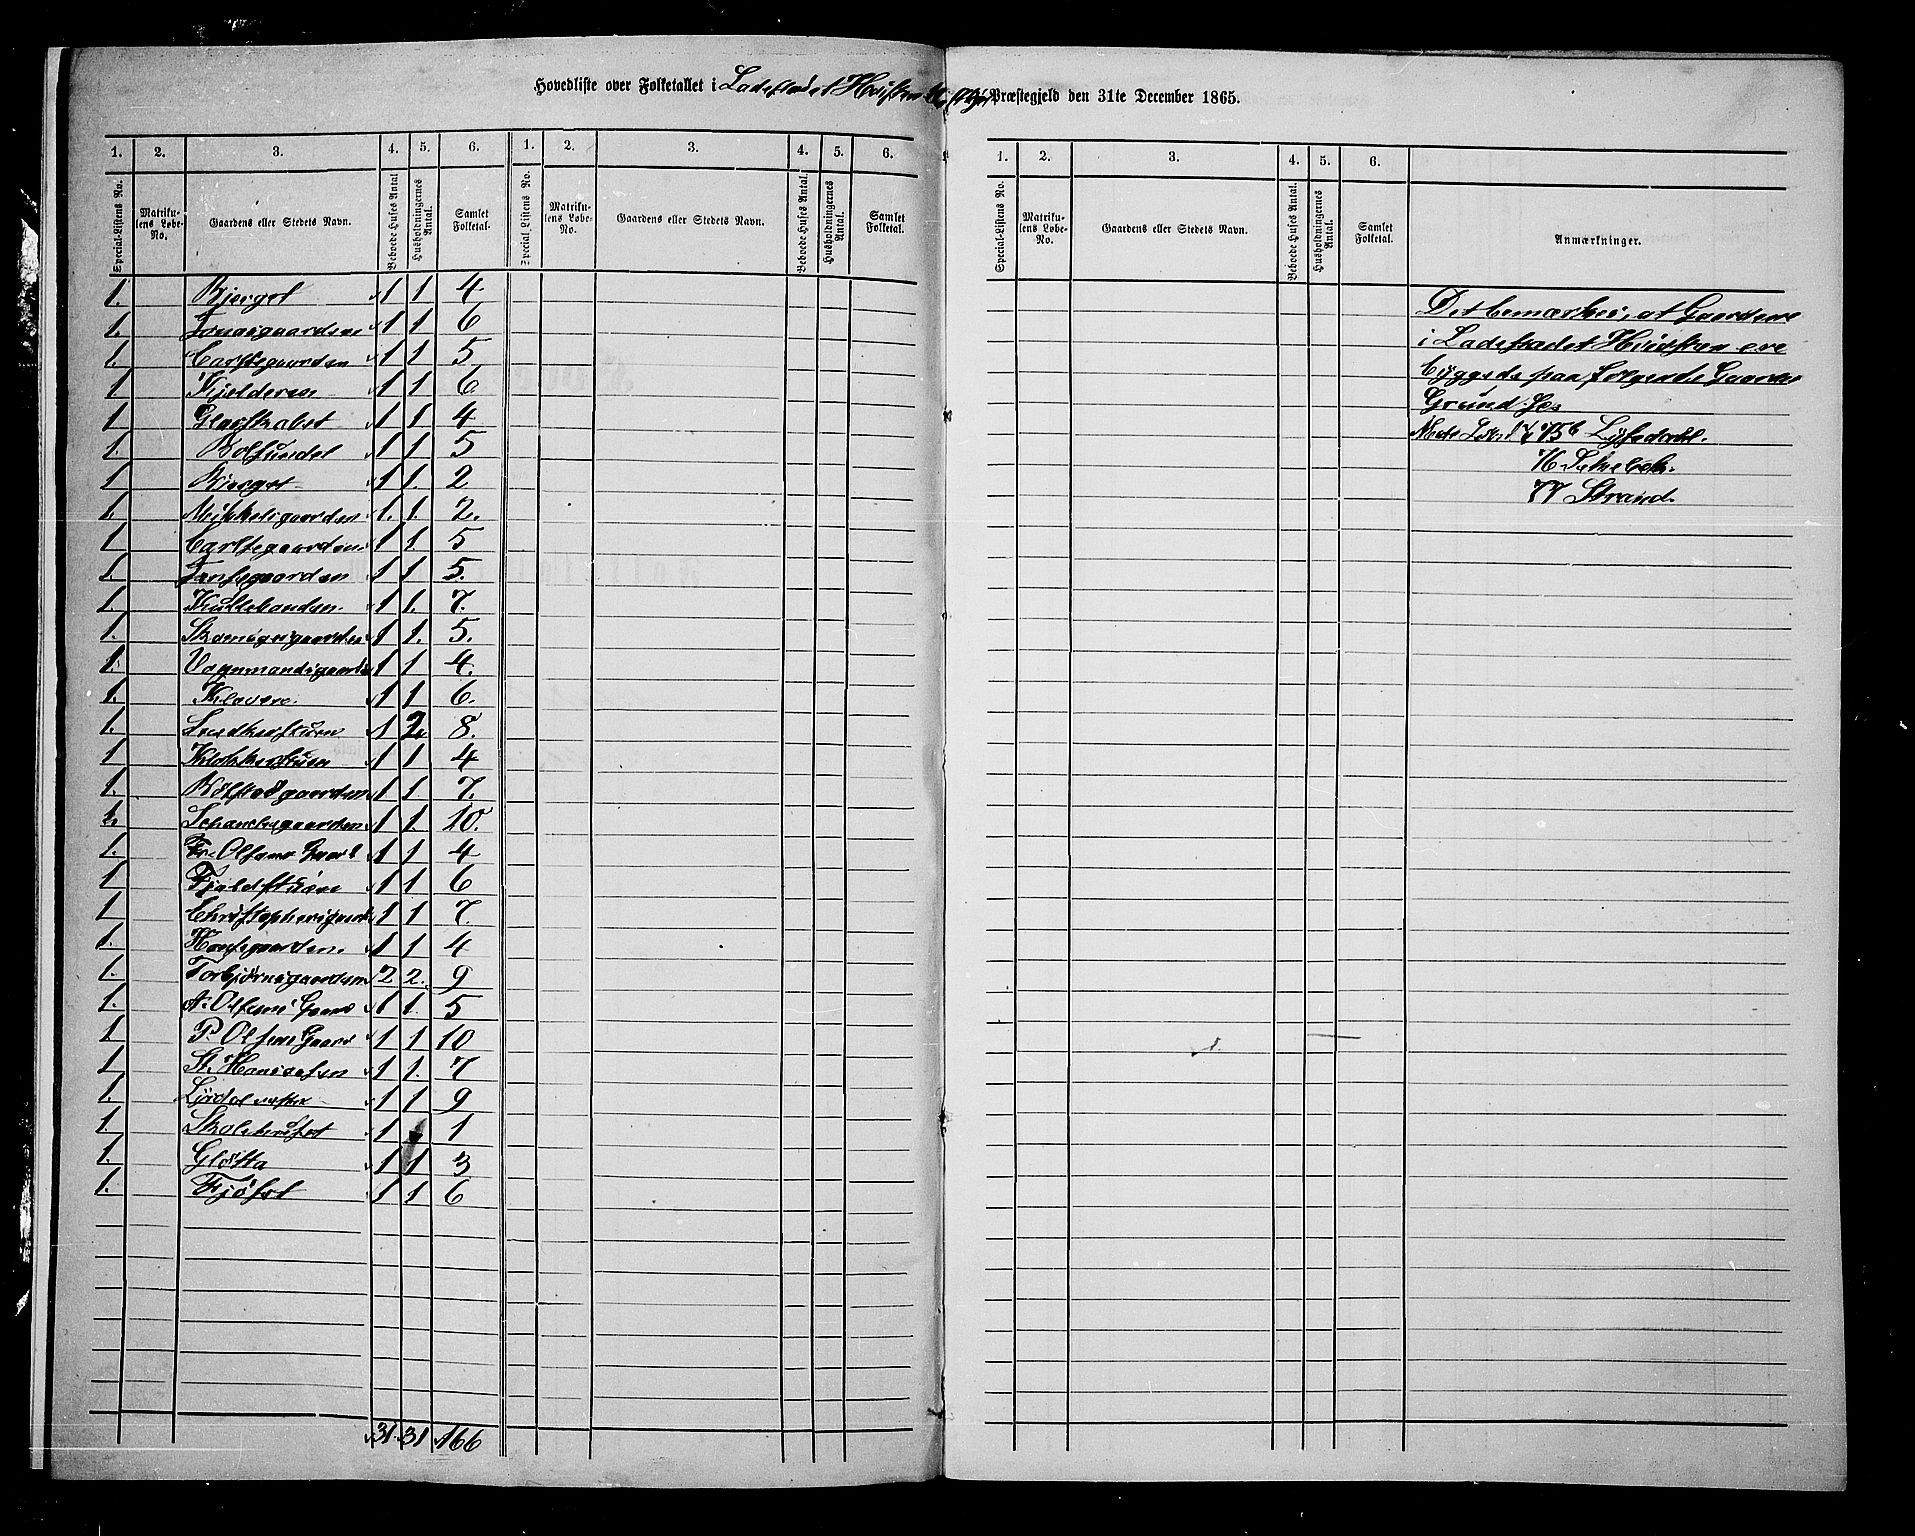 Hovedliste over Folketallet i Ladestedet Hvidsten Præstegjeld den 31te December 1865.
1. 2. 3. 4. 5. 6. 1. 2. 3. 4. 5. 6. 1. 2. 3. 4. 5. 6.
Special-Listens No. Matrikulens Løbe-No. Gaardens eller Stedets Navn. Beboede Huses Antal Husholdningernes Antal. Samlet Folketal.
Special Listens No. Matrikulens Løbe-No. Gaardens eller Stedets Navn. Beboede Huses Antal. Husholdningernes Antal. Samlet Folketal.
Special-Listens No. Matrikulens Løbe-No. Gaardens eller Stedets Navn. Beboede Huses Antal. Husholdningernes Antal. Samlet Folketal. Anmærkninger.
1. Bjerget 1 1 4
1. 1 1 6
1. Carlsegaarden 1 1 5
1 Kjelderen 1 1 6
1. Glasskabet 1 1 4
1. 1 1 5
1 Bjerget 1 1. 2
1. Mikkelsgaarden 1. 1. 2.
1 Carlsegaarden. 1 1. 5
1. Jansegaarden 1 1 5.
1. 1 1. 7.
1. 1 1. 5.
1. Vognmandsgaarden 1 1 4.
1. Klavere. 1 1 6.
1. 1 2. 8.
1 Klokkerstuen 1 1 4
1. Bolstadgaarden 1 1. 7.
1. 1 1. 10.
1. Fr. Olsens Gaard 1 1 4
1 Fjeldstuen 1 1 6
1 Christophersgaarden 1 1 7
1. Hansegaarden. 1 1 4
1. Torbjørnsgaarden 2 2. 9
1. A. Olsens Gaard 1 1. 5
1 P. Olsens Gaard 1 1 10
1. St. Hansesen 1 1. 7
1. 1 1 9
1. Skolehuset 1 1
1. Gløtta 1 1 3
1. Fjøset 1 1 6
31. 31 166
Det bemærkes, at Gaardene
i Ladestedet Hvidsten ere
byggede paa følgende Gaardes
Grund
75b
76
77 Strand.